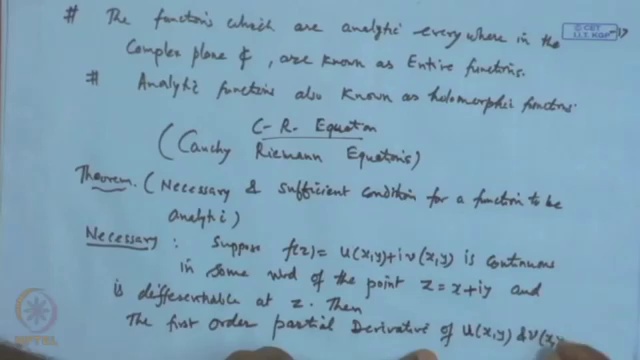 # The functions which are analytic every where in the
Complex plane ₵, are known as Entire functions.
# Analytic functions also known as holomorphic functions.
C-R- Equation
(Cauchy Riemann Equations)
Theorem. (Necessary & sufficient condition for a function to be
analytic)
Necessary : Suppose f(z) = u(x,y)+iv(x,y) is continuous
in some nbd of the point z=x+iy and
is differentiable at z. Then
The first order partial Derivative of u(x,y) & v(x,y
© CET
I.I.T. KGP
NPTEL